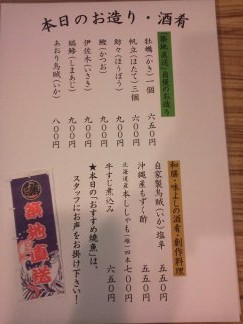 本日のお造り・酒肴
築地直送!自慢のお造り
牡蠣(かき)一個 六五〇円
帆立(ほたて)三個 六〇〇円
(ほうぼう) 九〇〇円
鰹(かつお) 九〇〇円
伊佐木(いさき) 八〇〇円
縞鯵(しまあじ) 九〇〇円
あおり烏賊(いか) 八〇〇円
和膳・味よしの酒肴・創作料理
自家製烏賊(いか)塩辛 五五〇円
沖縄産もずく酢 五五〇円
北海道産本ししゃも(雌)四本 七〇〇円
牛すじ煮込み 六五〇円
★本日の「おすすめ焼魚」は、
スタッフにお声をお掛け下さい!
築地直送!